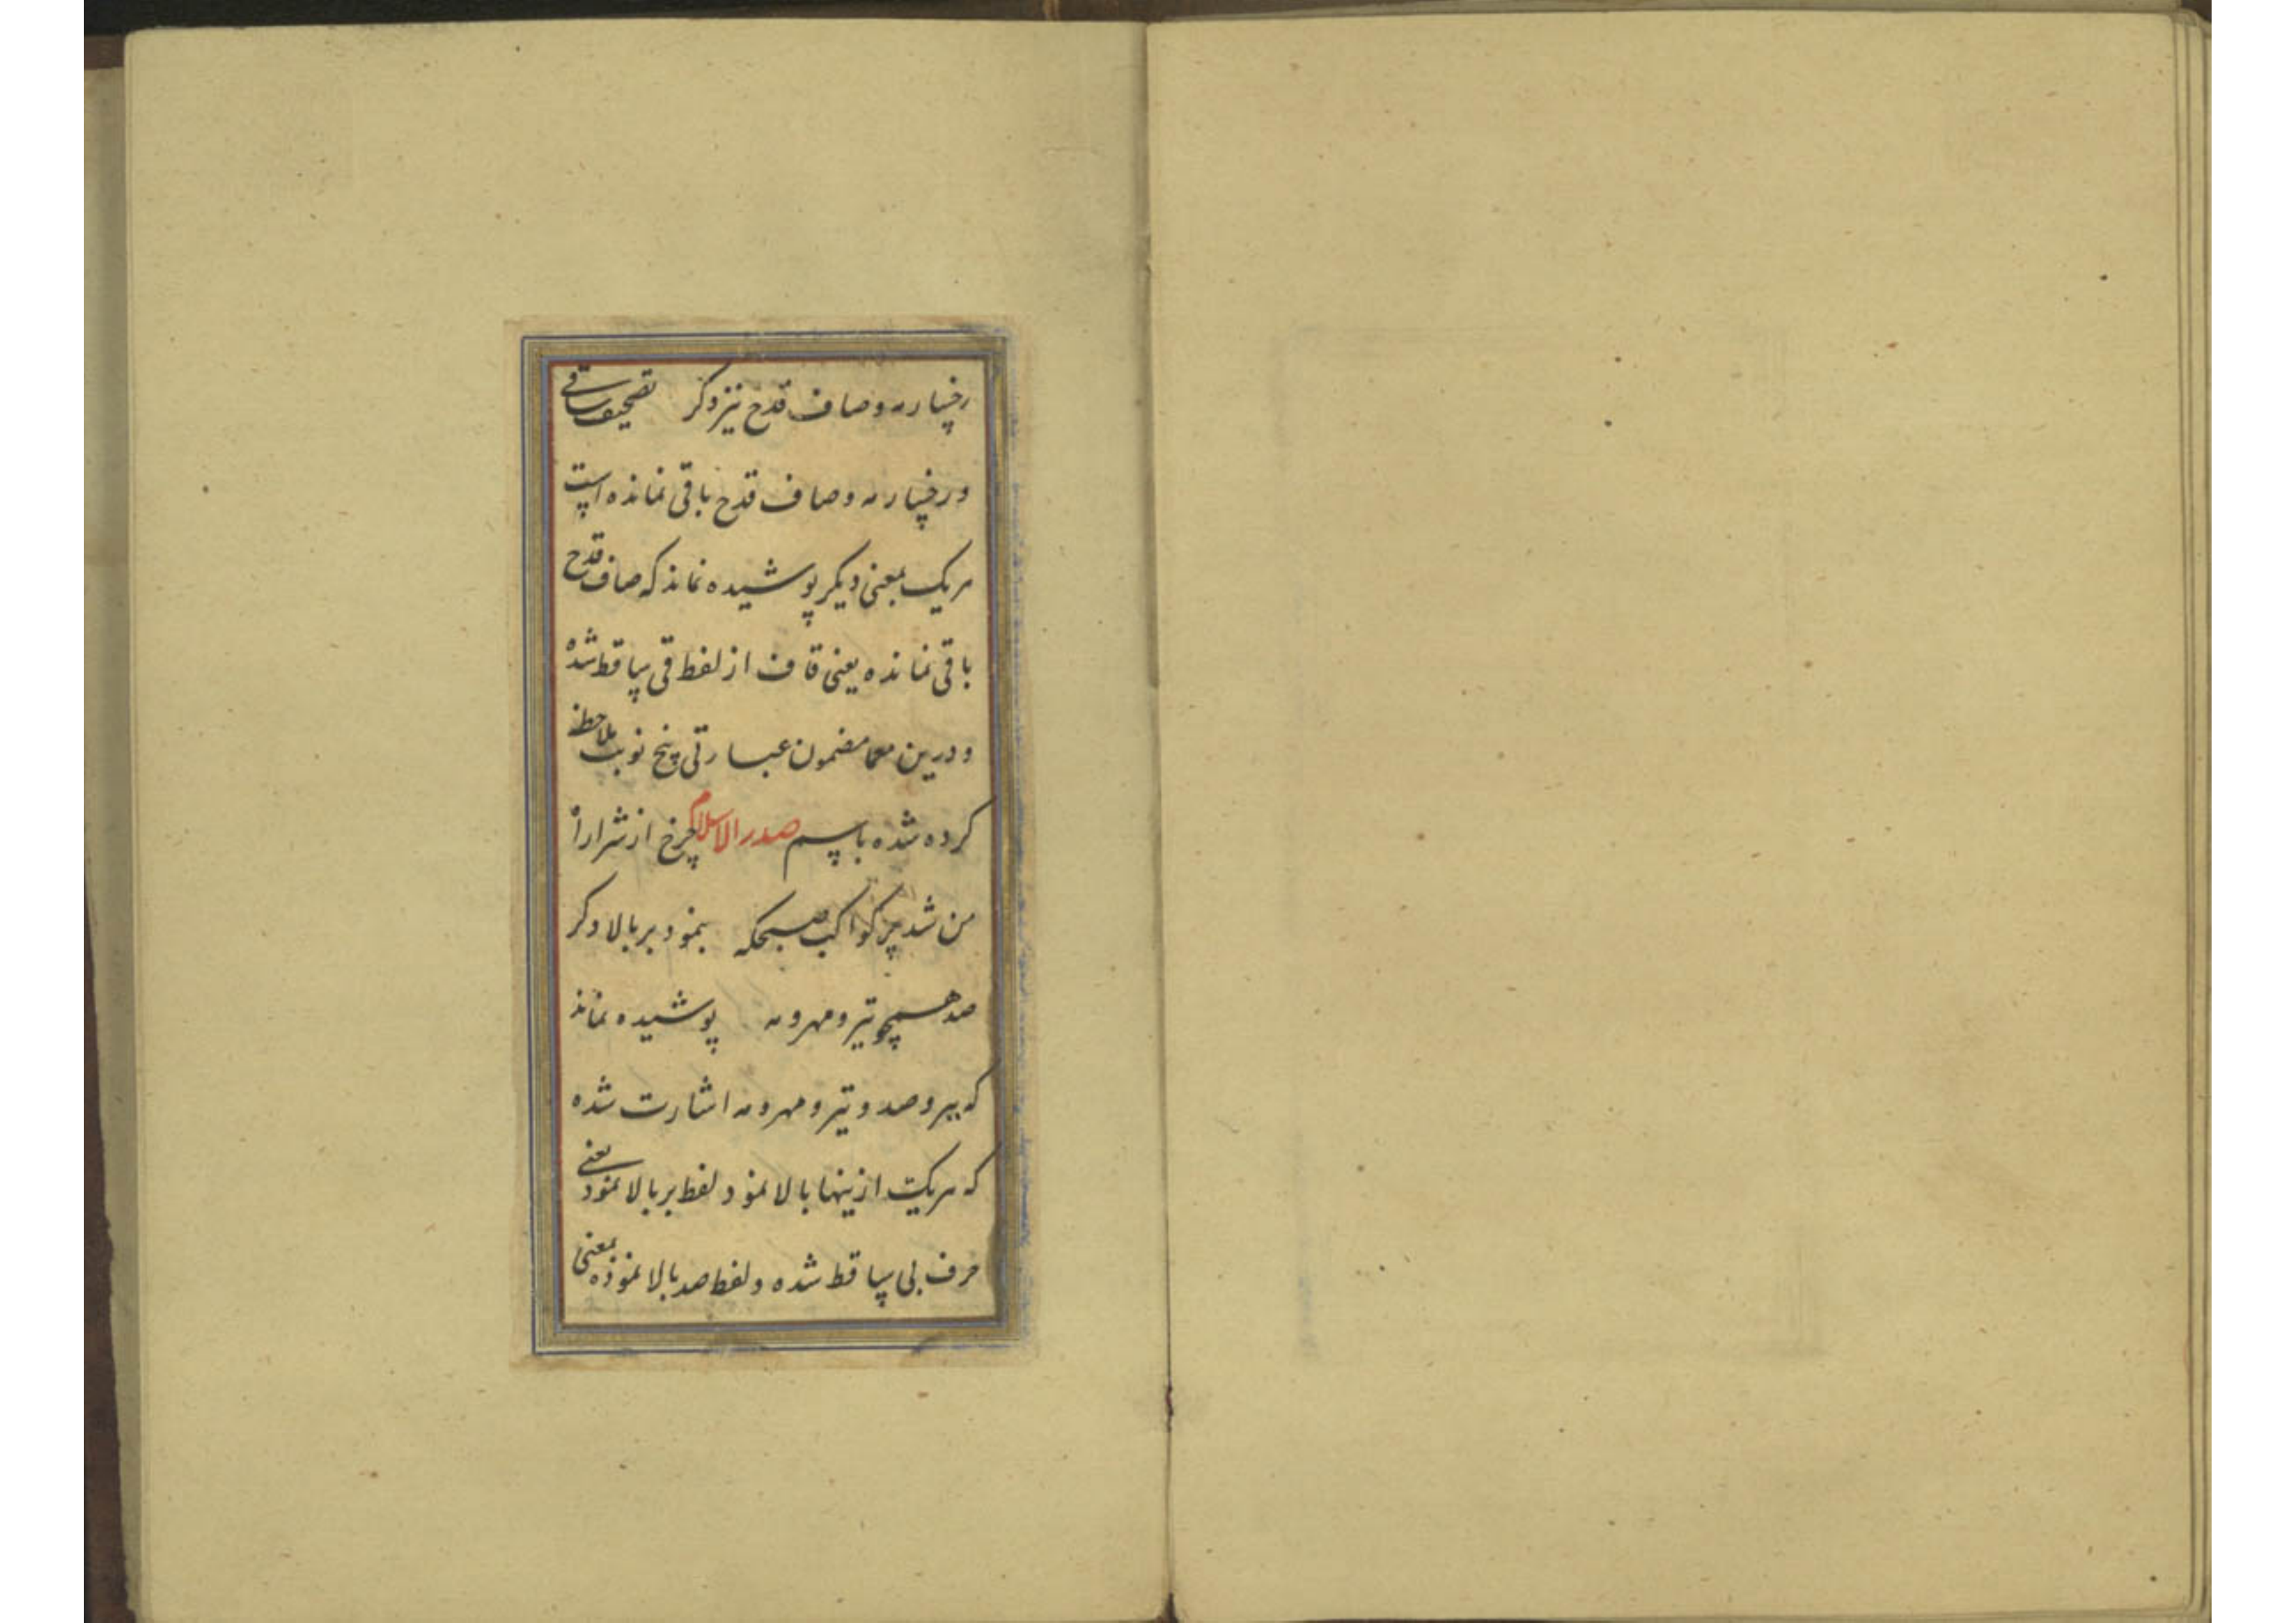 رخسار مه وصاف قدح نیز دکر تصحیف ساقی
و رخسار مه و صاف قدح باقی نمانده است
هریک بمعنی دیکر پوشیده نماند که صاف قدح
باقی نمانده یعنی قاف از لفظ قی ساقط شده
و درین معما مضمون عبارتی پنج نوبت ملاحظه
کرده شده باسم صدر الاسلام چرخ از شرار آه
من شد پر کواکب صبحکه بنمود بر بالا دکر
صد همچو تیر و مهر و مه پوشیده نماند
که ببر و صد و تیر و مهر و مه اشارت شده
که هریک ازینها بالا نمود لفظ بر بالا نمود یعنی
حرف بی ساقط شده و لفظ صد بالا نموده بمعنی